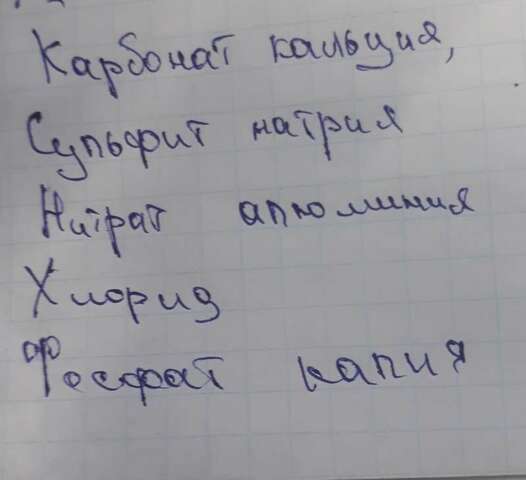 Карбонат кальция,
Сульфит натрия
Нитрат алюминия
Хлорид
Фосфат калия